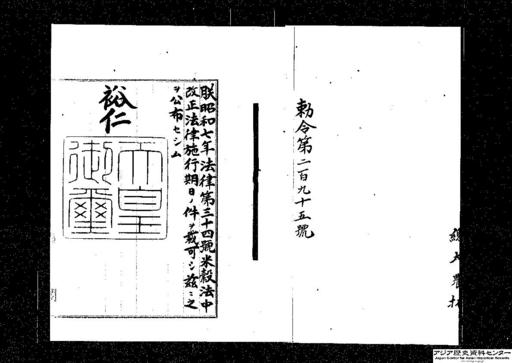 勅令第二百九十五號
朕昭和七年法律第三十四號米穀法中
改正法律施行期日ノ件ヲ裁可シ茲ニ之
ヲ公布セシム
裕仁
天皇
御璽
アジア歴史資料センター
Japan Center for Asian Historical Records